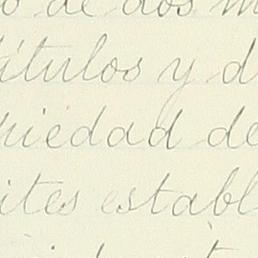 o de dos m
títulos y d
piedad de
ites establ